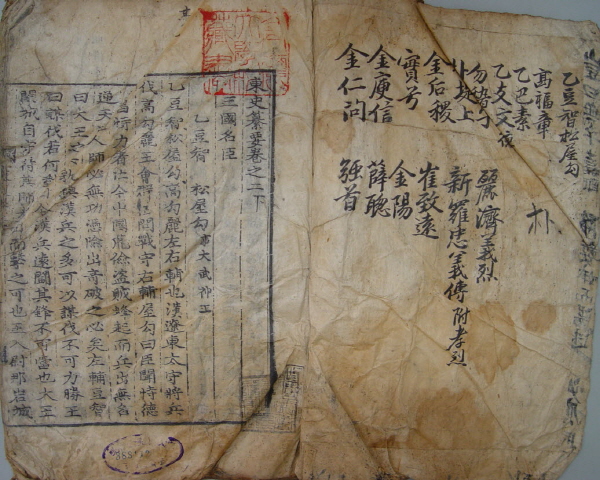 乙豆智松屋勾
高福章
乙巴素
乙支文德
勿稽子
朴堤上
金后稷
實兮
金庾信
金仁問
朴
麗濟義烈
新羅忠義傳附孝烈
崔致遠
金陽
薛聰
强首
東史纂要卷之二下
三國名臣
乙豆智 松屋勾 事大武神王
乙豆智松屋勾高勾麗左右輔也漢遼東太守將兵
伐高勾麗王會群臣問戰守右輔屋勾曰臣聞恃德
昌恃力者亡今中國荒儉盜賊蜂起而兵出無名
逆天人師必無功憑險出奇破之必矣左輔豆智
曰大王之孰與漢兵之多可以謀伐不可力勝王
曰謀伐若何對曰今漢兵遠鬪其鋒不可當也大王
閉城自守待其師老出而擊之可也王入尉那岩城